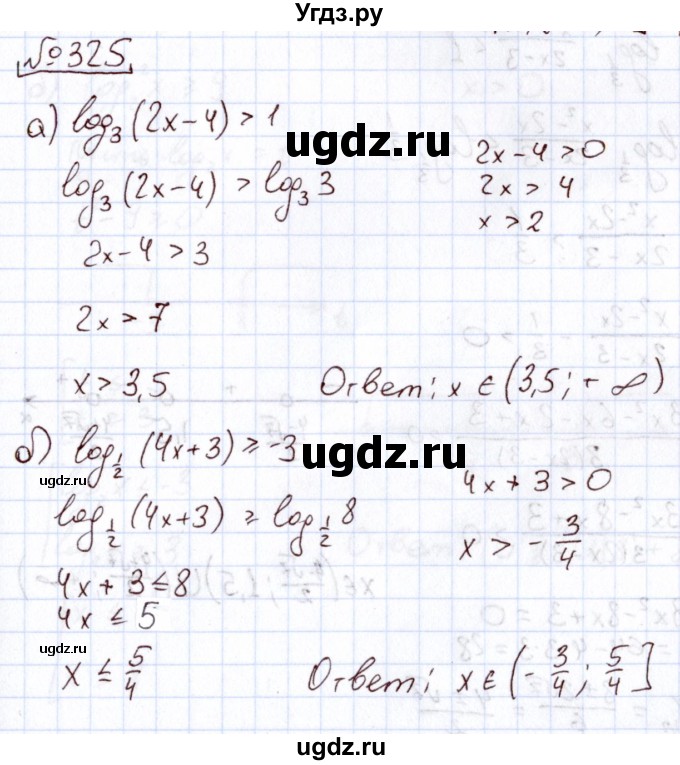 Угдз.ру
№325
а) log₃(2x-4) > 1
ugdz.ru
2x-4>0
log₃(2x-4) > log₃3
2x > 4
x > 2
2x-4 > 3
2x > 7
x > 3,5
Ответ: x ∈ (3,5; +∞)
б) log½(4x+3) ≥ -3
ugdz.ru
ugdz.ru
4x+3 > 0
log½(4x+3) ≥ log½8
x > -3/4
4x+3 ≤ 8
4x ≤ 5
ugdz.ru
x ≤ 5/4
Ответ: x ∈ (-3/4; 5/4]
ugdz.ru